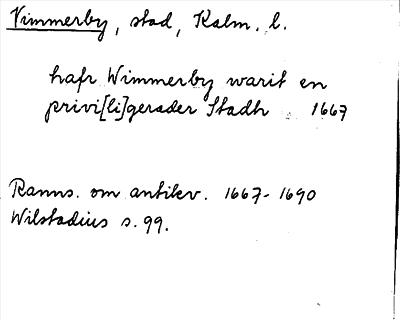 Vimmerby, stad, Kalm. l.
hafr Wimmerby warit en
privi[li]gerader Stadh 1667
Ranns. om antikv. 1667-1690
Wilstadius s. 99.